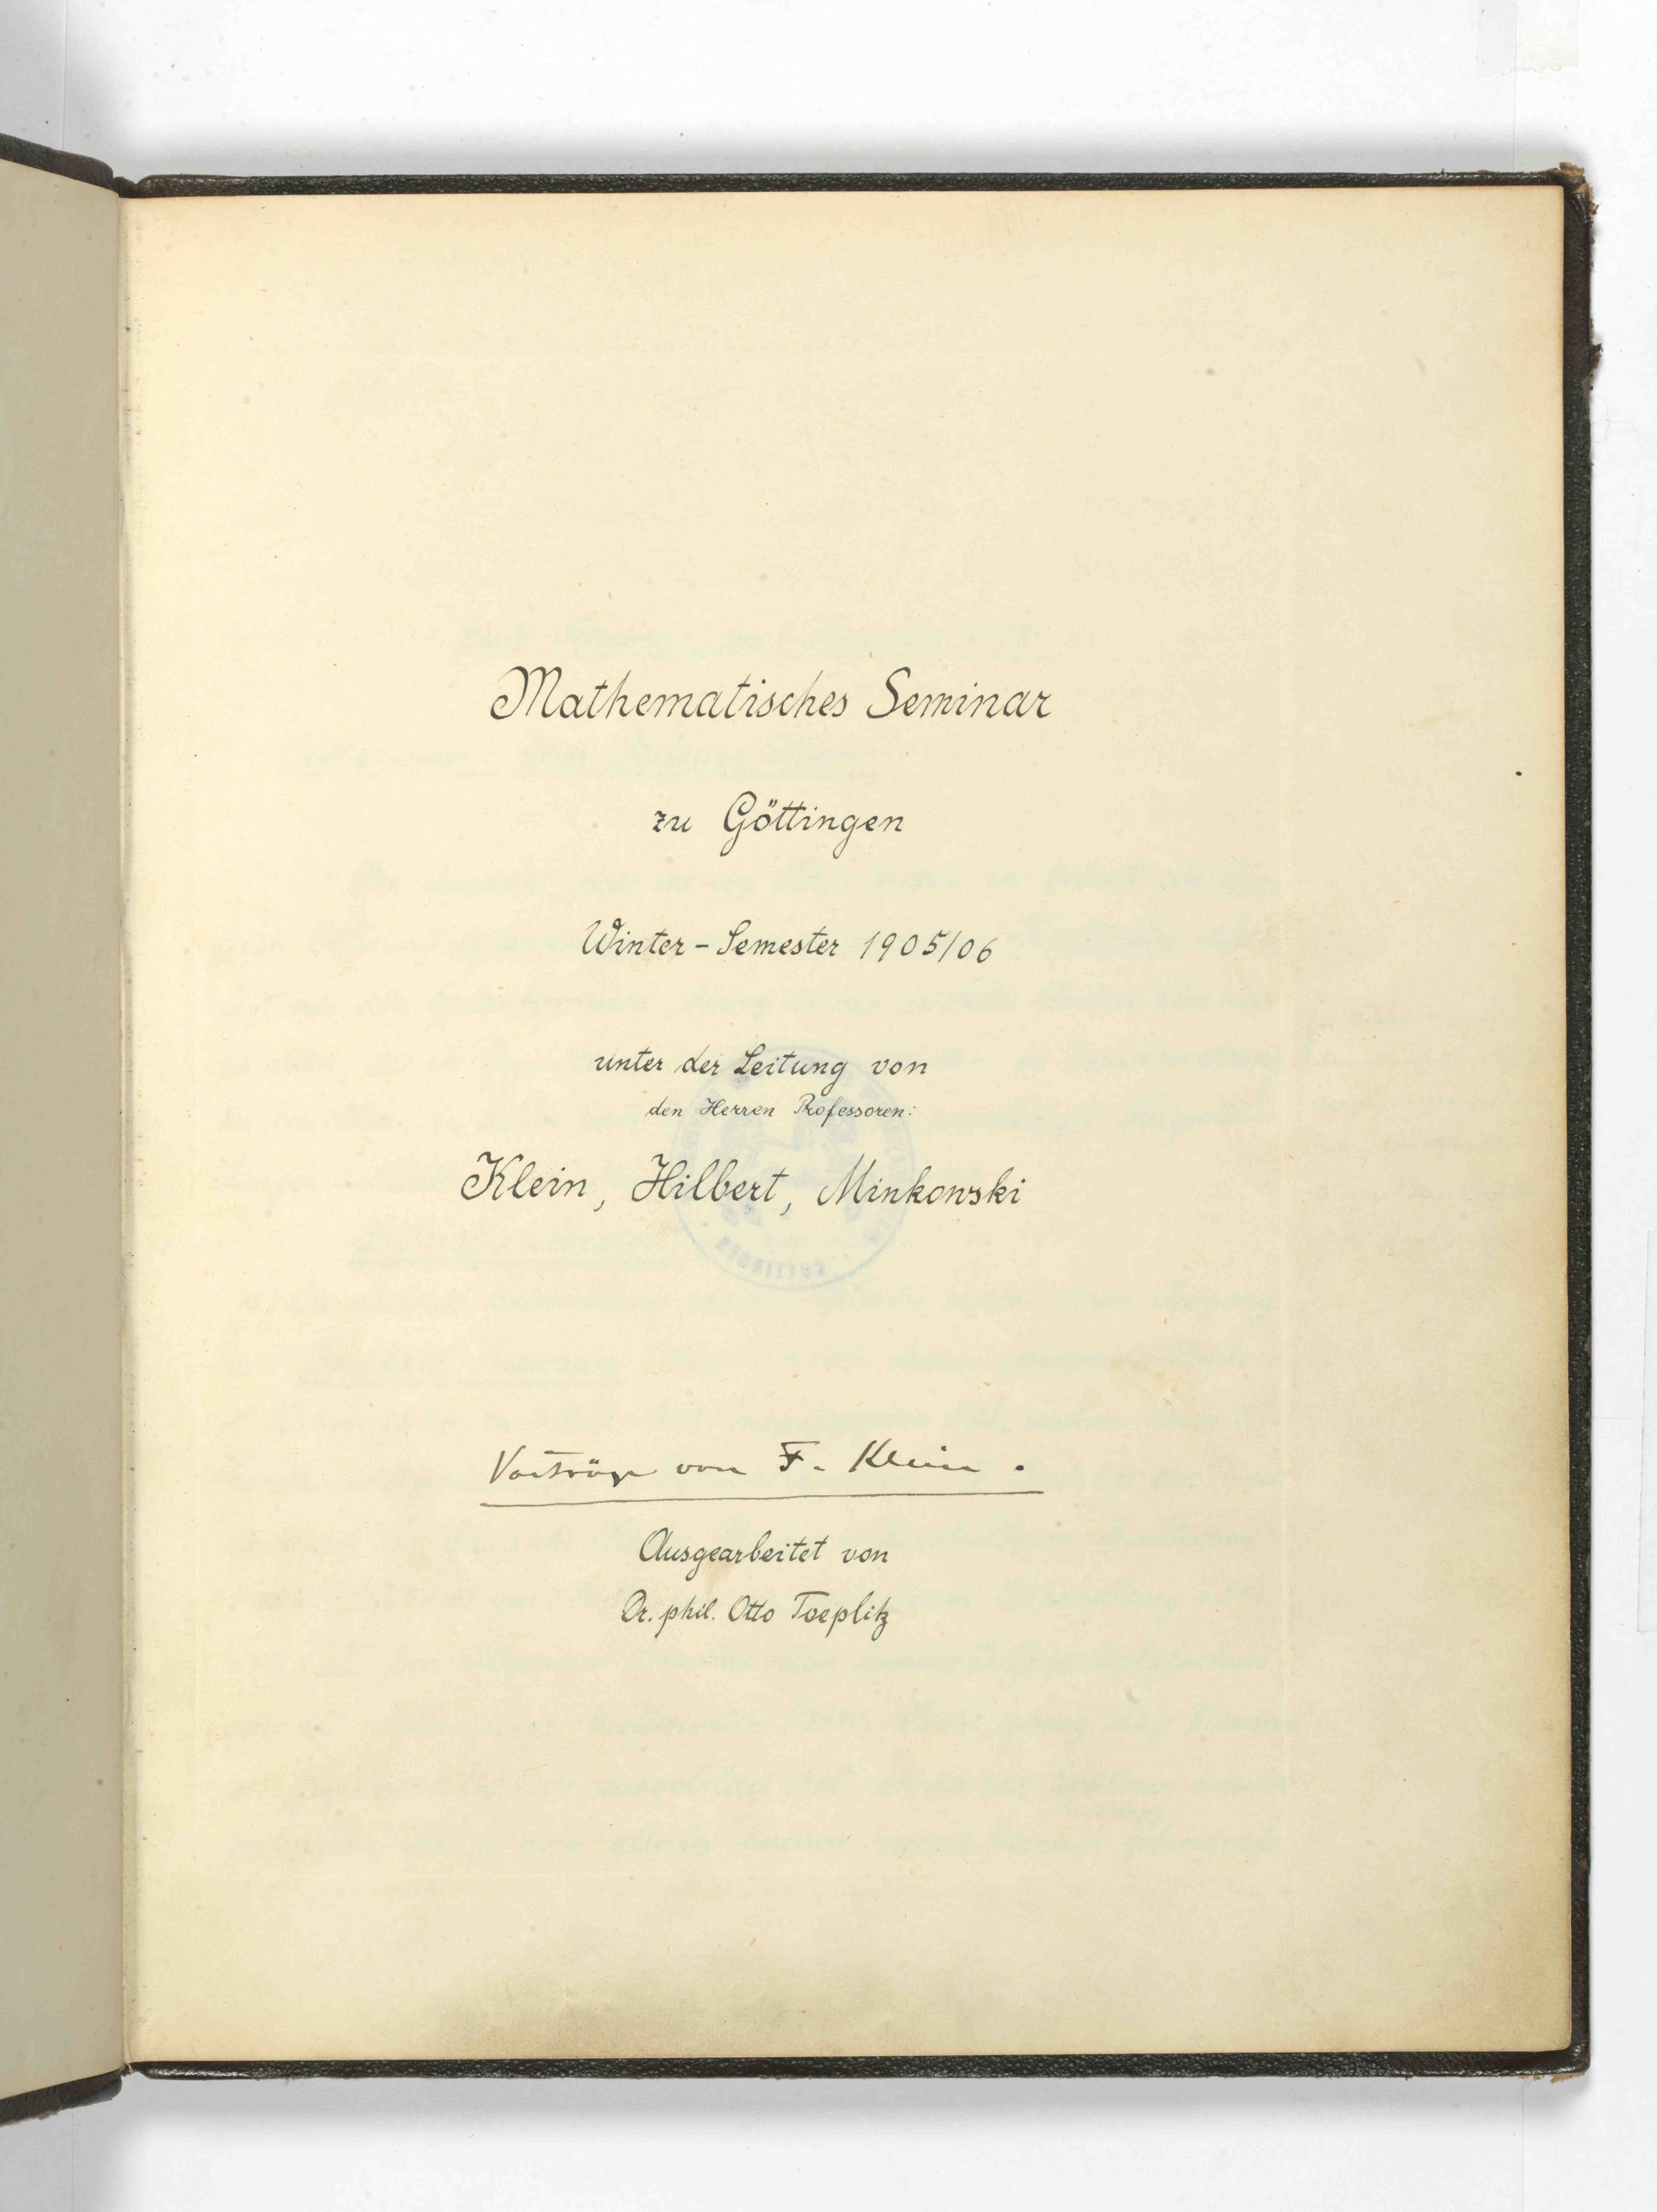 Mathematisches Seminar
zu Göttingen
Winter-Semester 1905/06
unter der Leitung von
den Herren Professoren:
Klein, Hilbert, Minkowski
Vorträge von F. Klein.
Ausgearbeitet von
Dr. phil. Otto Toeplitz